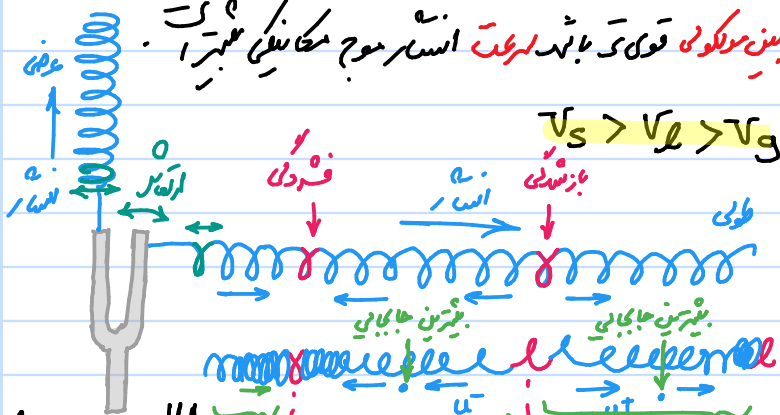 بین مولکولی قوی تر باشد سرعت انتشار موج مکانیکی بیشتر است.
Vs > Vl > Vg
عرضی
انتشار
ارتعاش
فشردگی
انتشار
بازشدگی
طولی
بیشترین جابجایی
بیشترین جابجایی
u⁻
u⁺